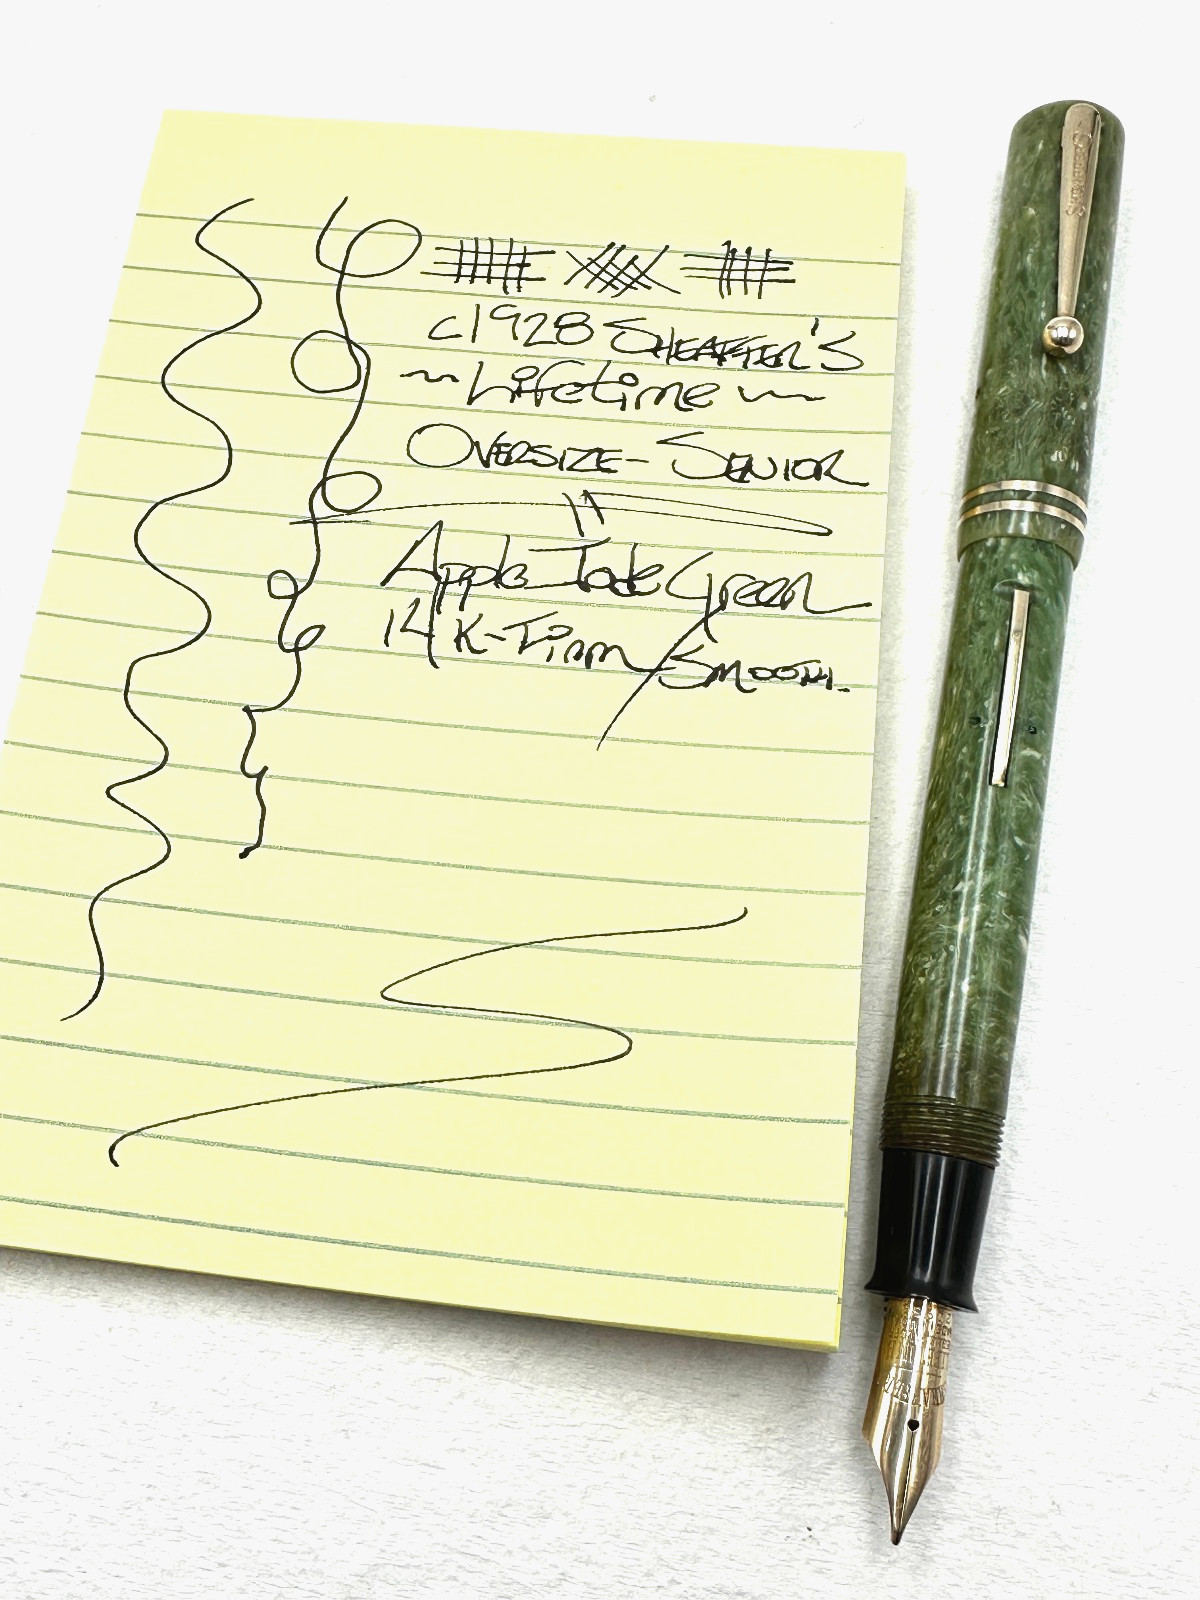 c1928 SHEAFFER'S
~ Lifetime ~
OVERSIZE - SENIOR
Apple Jade Green
14K-Firm / SMOOTH.
SHEAFFER'S